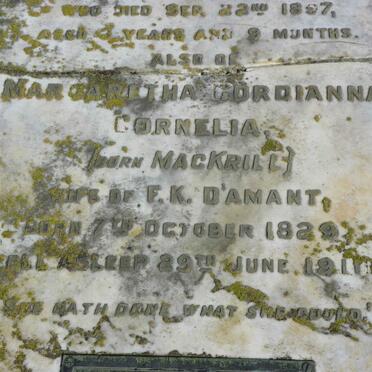 WHO DIED SEP. 22ND 1897,
AGED 4 YEARS AND 9 MONTHS.
ALSO OF
MARGARETHA GORDIANNA
CORNELIA,
(BORN MACKRILL)
WIFE OF F.K. D'AMANT,
BORN 7TH OCTOBER 1829,
FELL ASLEEP 29TH JUNE
SHE HATH DONE WHAT SHE COULD."